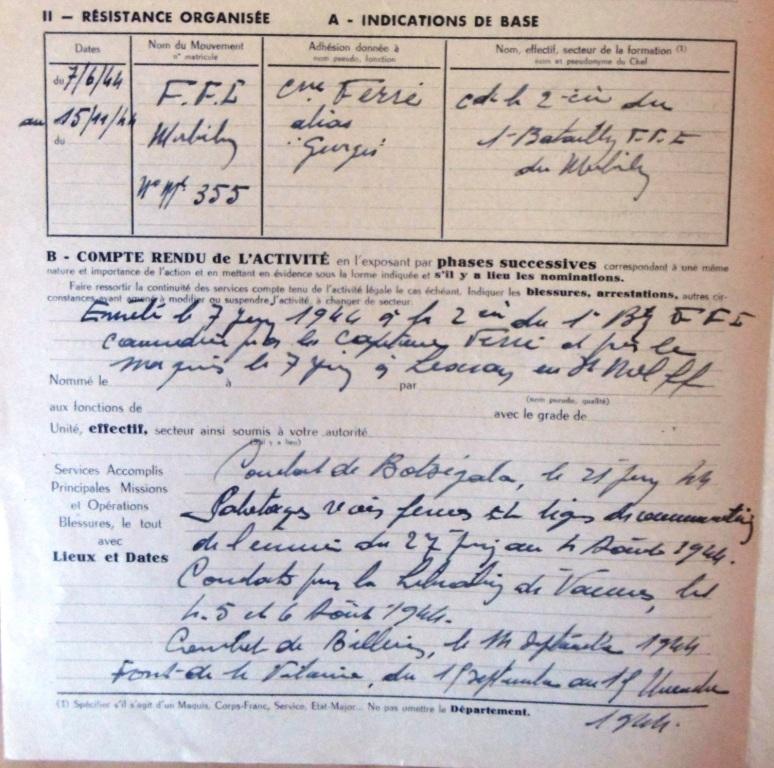 II — RÉSISTANCE ORGANISÉE A - INDICATIONS DE BASE
Dates
Nom du Mouvement
n° matricule
Adhésion donnée à
nom pseudo, fonction
Nom, effectif, secteur de la formation (1)
nom et pseudonyme du Chef
du 7/6/44
au 15/11/44
du
F.F.I
Morbihan
N° Mle 355
Cne Ferré
alias
"Georges"
cdt la 2e Cie du
1er Bataillon F.F.I
du Morbihan
B - COMPTE RENDU de L'ACTIVITÉ en l'exposant par phases successives correspondant à une même
nature et importance de l'action et en mettant en évidence sous la forme indiquée et s'il y a lieu les nominations.
Faire ressortir la continuité des services compte tenu de l'activité légale le cas échéant. Indiquer les blessures, arrestations, autres cir-
constances ayant amené à modifier ou suspendre l'activité, à changer de secteur.
Enrolé le 7 juin 1944 à la 2e Cie du 1er Btn F F I
commandée par le capitaine Ferré et pris le
maquis le 7 juin à en St Nolff
Nommé le à par
(nom pseudo, qualité)
aux fonctions de avec le grade de
Unité, effectif, secteur ainsi soumis à votre autorité
(s'il y a lieu)
Services Accomplis
Principales Missions
et Opérations
Blessures, le tout
avec
Lieux et Dates
Combat de Botségalo, le 21 juin 44
Sabotages voies ferrées et lignes de communication
de l'ennemi du 27 juin au 4 Août 1944.
Combats pour la Libération de Vannes, les
4. 5 et 6 Août 1944.
Combat de Billiers, le 14 septembre 1944
Front de la Vilaine, du 15 septembre au 15 Novembre
1944.
(1) Spécifier s'il s'agit d'un Maquis, Corps-Franc, Service, Etat-Major... Ne pas omettre le Département.